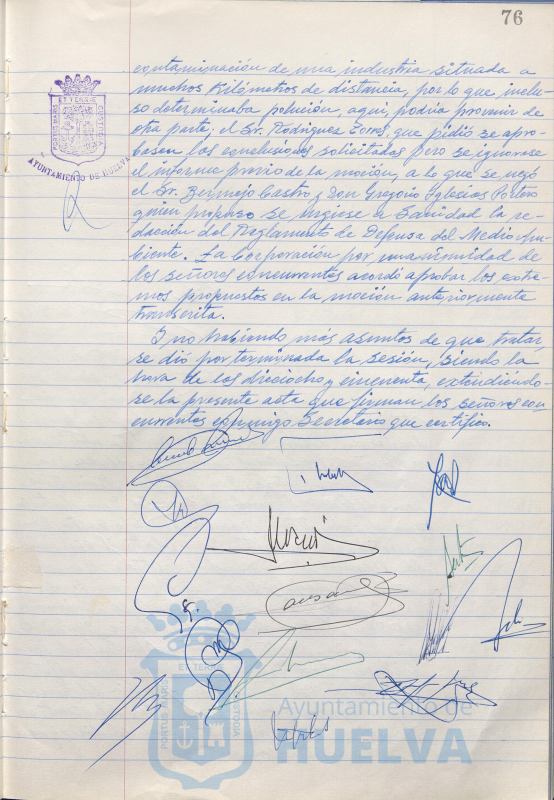 76
contaminación de una industria situada a
muchos kilómetros de distancia, por lo que inclu-
so determinaba polución, aquí, podría provenir de
otra parte; el Sr. Rodriguez Torres, que pidió se apro-
basen las conclusiones solicitadas pero se ignorase
el informe previo de la moción, a lo que se negó
el Sr. Bermejo Castro y Don Gregorio Iglesias Portero
quien propuso se urgiese a Sanidad la re-
dacción del Reglamento de Defensa del Medio Am-
biente. La Corporación por unanimidad de
los señores concurrentes acordó aprobar los extre-
mos propuestos en la moción anteriormente
transcrita.
Y no habiendo más asuntos de que tratar
se dió por terminada la sesión, siendo la
hora de las dieciocho y cincuenta, extendiéndo-
se la presente acta que firman los señores con-
currentes conmigo Secretario que certifico.
PORTUS MARIS
ET TERRE
CUSTODIA
AYUNTAMIENTO DE HUELVA
PORTUS MARIS
ET TERRE
CUSTODIA
Ayuntamiento de
HUELVA